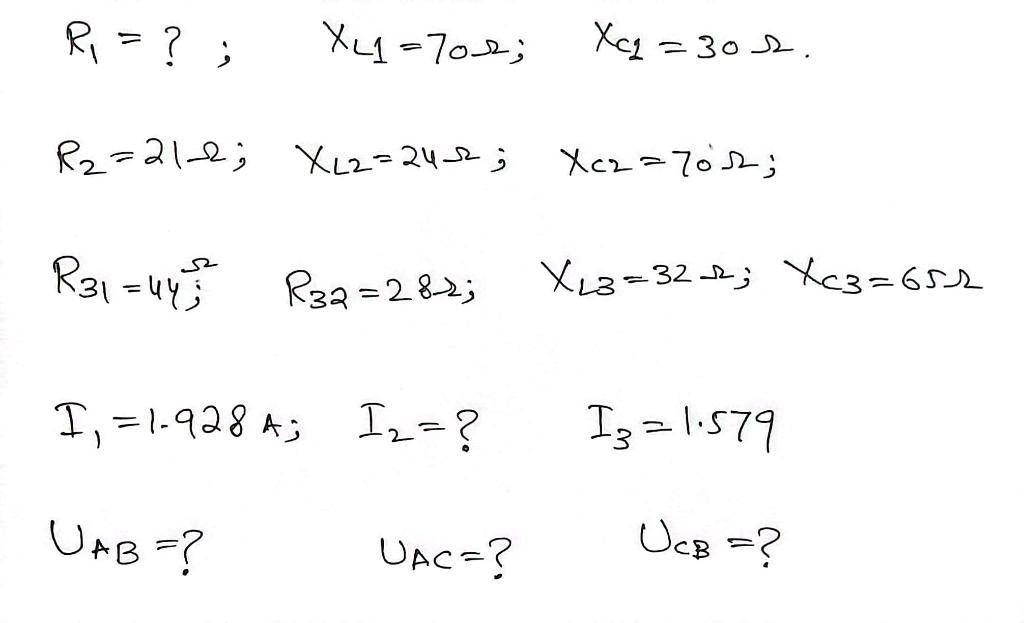 R₁ = ? ; X_L1 = 70Ω; X_C1 = 30Ω.
R₂ = 21Ω; X_L2 = 24Ω; X_C2 = 70Ω;
R₃₁ = 44Ω; R₃₂ = 28Ω; X_L3 = 32Ω; X_C3 = 65Ω
I₁ = 1.928 A; I₂ = ? I₃ = 1.579
U_AB = ? U_AC = ? U_CB = ?